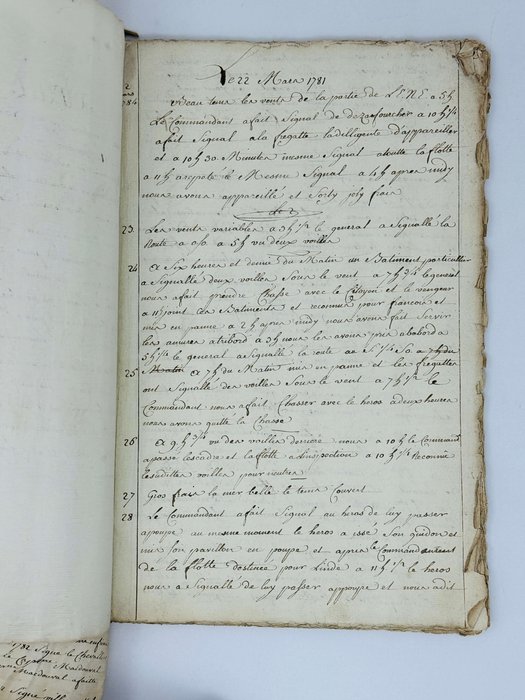 Le 22 Mars 1781
Beau tems les vents de la partie de L'ENE a 5h
Le Commandant a fait Signal de dezafourcher a 10h 1/4
a fait Signal a la fregatte d'appareiller
et a 10h 30 Minutes mesme Signal a toutte la flotte
a 11h a repeté le Mesme Signal a 4h apres midy
nous avons appareillé et joly frais
23 Les vents variables a 3h 1/2 le general a Signallé la
Route a o/o a 5h vu deux voilles
24 a Six heures et demie du Matin un Batiment particulier
a Signallé deux voilles Sous le vent a 7h 3/4 le general
nous a fait prendre Chasse avec le Citoyen et le vengeur
a 11 joint les Batiments et reconnus pour francois et
mis en panne a 2h apres midy nous avons fait Servir
les amures a tribord a 3h nous les avons pris a babord a
5h 1/2 le general a Signallé la route au
25 a 7h du Matin mis en panne et les fregattes
ont Signallé des voilles Sous le vent a 7h 1/2 le
Commandant nous a fait Chasser avec le heros a deux heures
nous avons quitté la Chasse
26 a 9h 3/4 vu des voilles derriere nous a 10h le Command
a passe l'escadre et la flotte a l'inspection a 10h 1/2 Reconnu
les dittes voilles pour neutres
27 Gros frais la mer belle le tems Couvert
28 Le Commandant a fait Signal au heros de luy passer
a poupe au mesme moment le heros a issé Son guidon et
mis Son pavillon en poupe et apres le Commandement
de la flotte destinée pour Linde a 11h 1/2 le heros
nous a Signallé de luy passer a pouppe et nous a dit
1782 Signé le